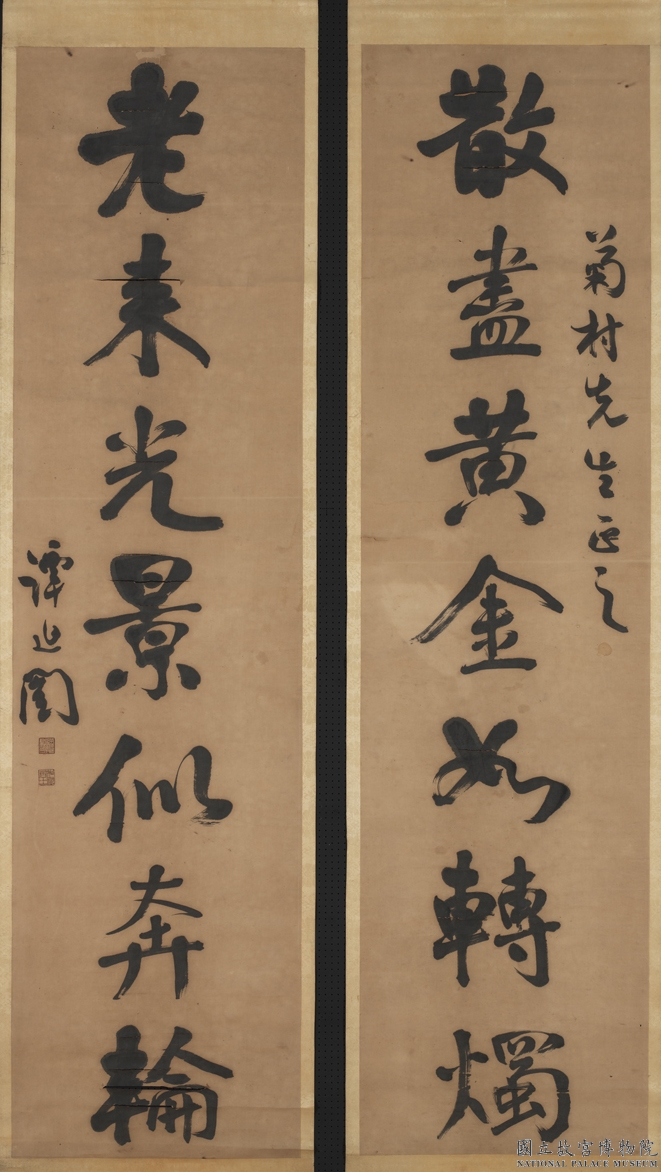 菊村先生正之
散盡黃金如轉燭
老來光景似奔輪
譚延闓
國立故宮博物院
NATIONAL PALACE MUSEUM